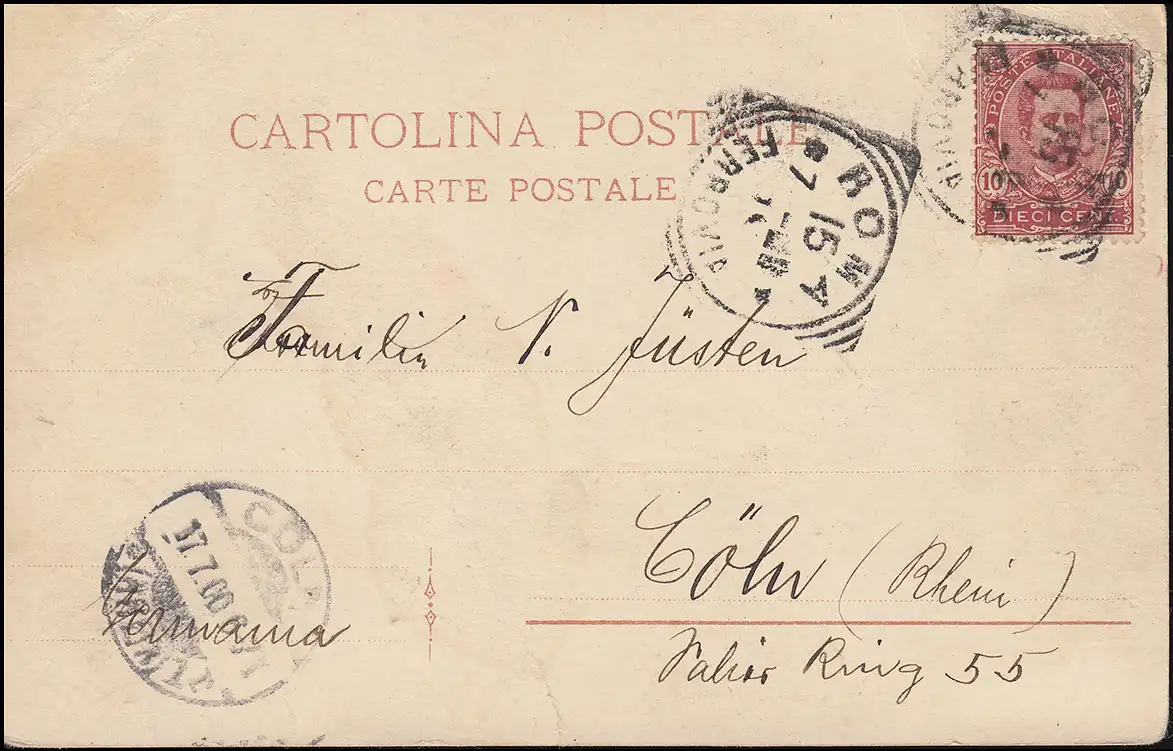 CARTOLINA POSTALE
CARTE POSTALE
POSTE ITALIANE
10 10
DIECI CENT.
ROMA
7 15
FERROVIA
Familie N. Jüsten
Cöln (Rhein)
Ring 55
CÖLN
17.7.00
Germania